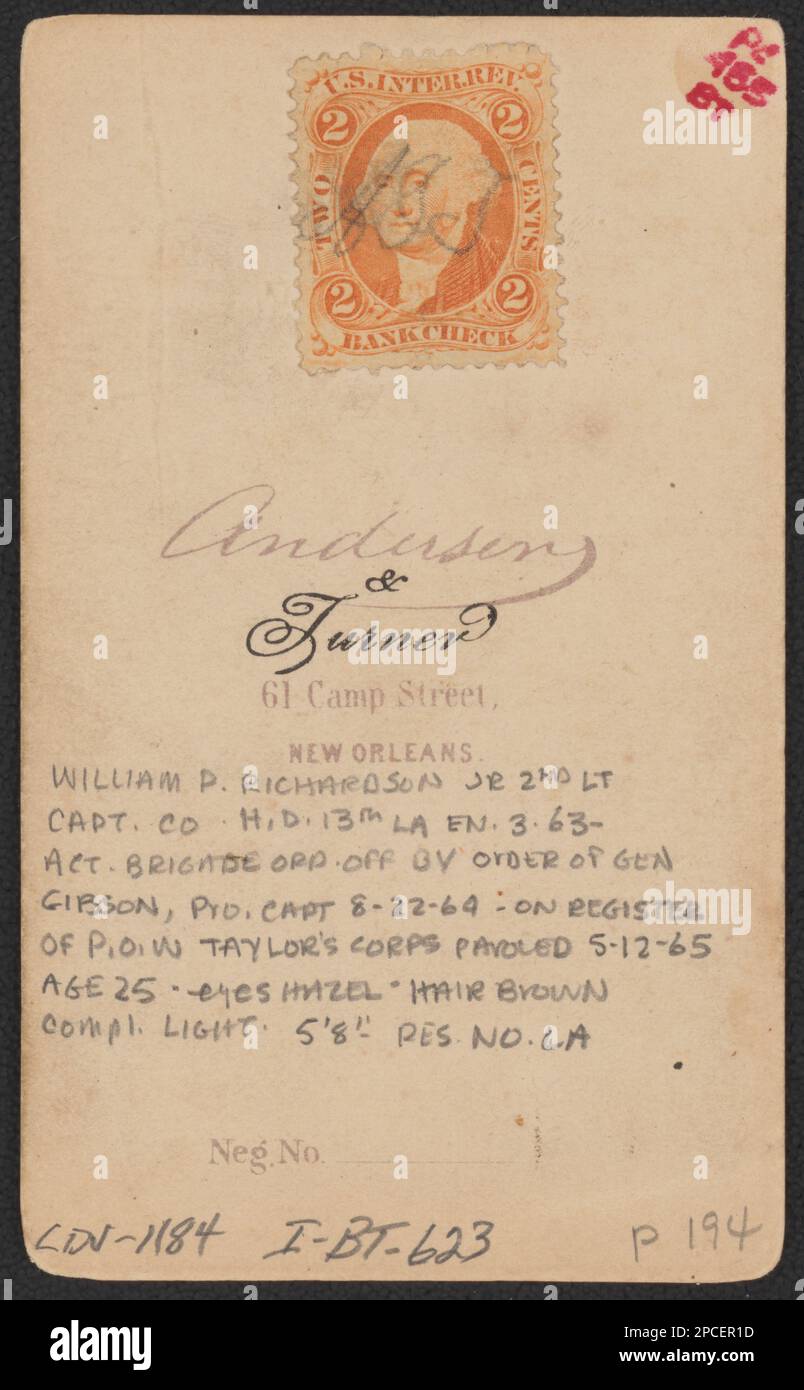 Pc
455
BT
U.S. INTER. REV.
2 2
TWO CENTS
2 2
BANK CHECK
Anderson
&
Turner
61 Camp Street,
NEW ORLEANS.
WILLIAM P. RICHARDSON JR 2ND LT
CAPT. CO. H, D. 13TH LA EN. 3.63-
ACT. BRIGADE ORD. OFF BY ORDER OF GEN
GIBSON, PRO. CAPT 8-22-64 - ON REGISTER
OF P.O.W TAYLOR'S CORPS PAROLED 5-12-65
AGE 25 - eyes HAZEL - HAIR BROWN
Compl. LIGHT. 5'8" RES. NO. LA
Neg. No.
CDV-1184 I-BT-623 P 194
a alamy
Image ID: 2PCER1D
www.alamy.com